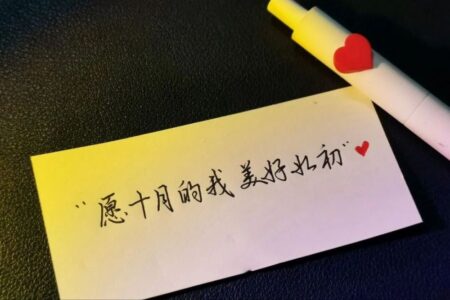 “愿十月的我美好如初”